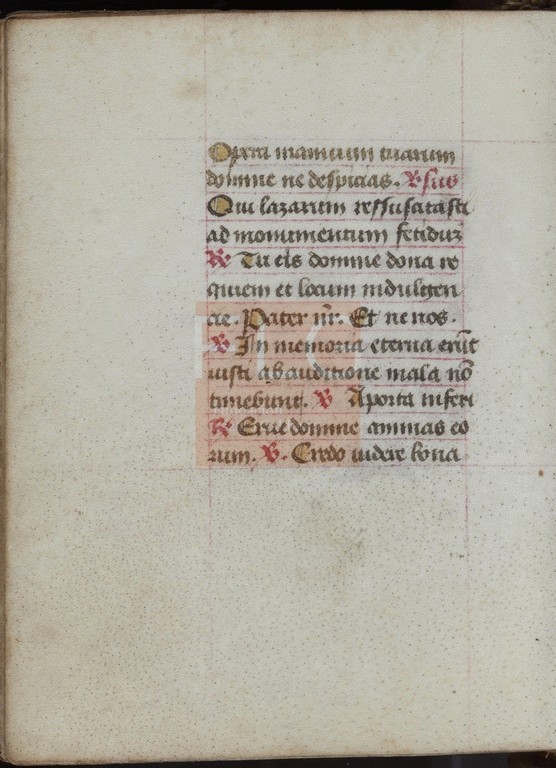 Opera manuum tuarum
domine ne despicias. ℣sus
Qui lazarum ressuscitasti
ad monumentum fetiduz
℟ Tu eis domine dona re
quiem et locum indulgen
cie. Pater nr̄. Et ne nos.
℣ In memoria eterna erūt
iusti ab auditione mala nō
timebunt. ℣ Aporta inferi
℟ Erue domine animas eo
rum. ℣. Credo videre bona